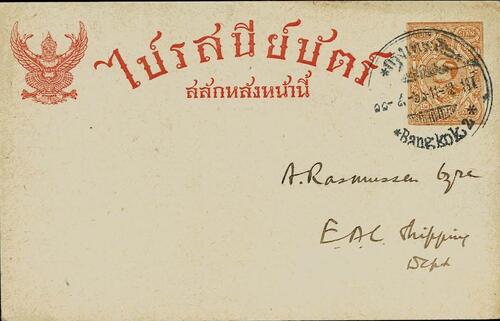 ไปรสนียบัตร์
สลักหลังหน้านี้
*Bangkok 2*
A. Rasmussen
E.A.C. Shipping
Dept